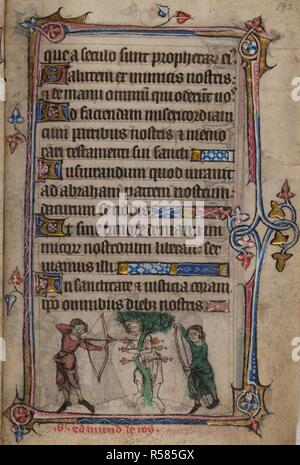 192
que a seculo sunt prophetar ei
Salutem ex inimicis nostris
& de manu omnium qui oderunt nos
Ad faciendam misericordiam
cum patribus nostris & memo
rari testamenti sui sancti
Iusiurandum quod iuravit
ad abraham patrem nostrum
daturum se nobis
Ut sine timore de manu in
imicorum nostrorum liberati ser
viamus illi
In sanctitate & iusticia coram
ipso omnibus diebus nostris
edmund le roy
alamy